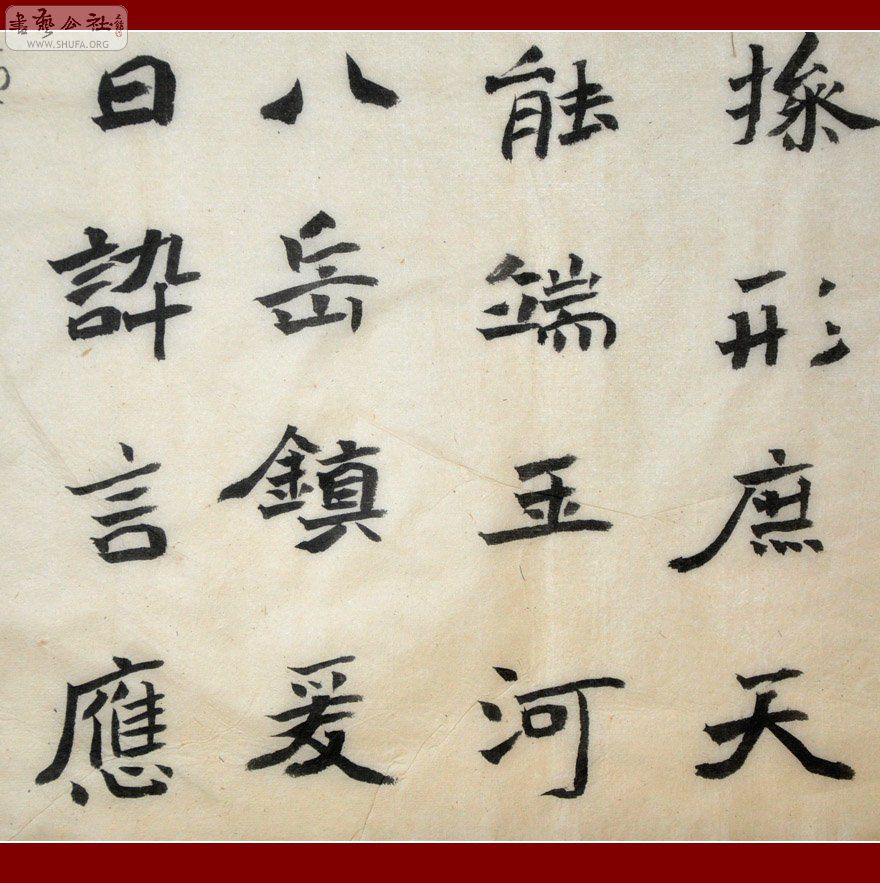 書藝公社
WWW.SHUFA.ORG
形庶天
能端玉河
八岳鎮爰
曰誶言應